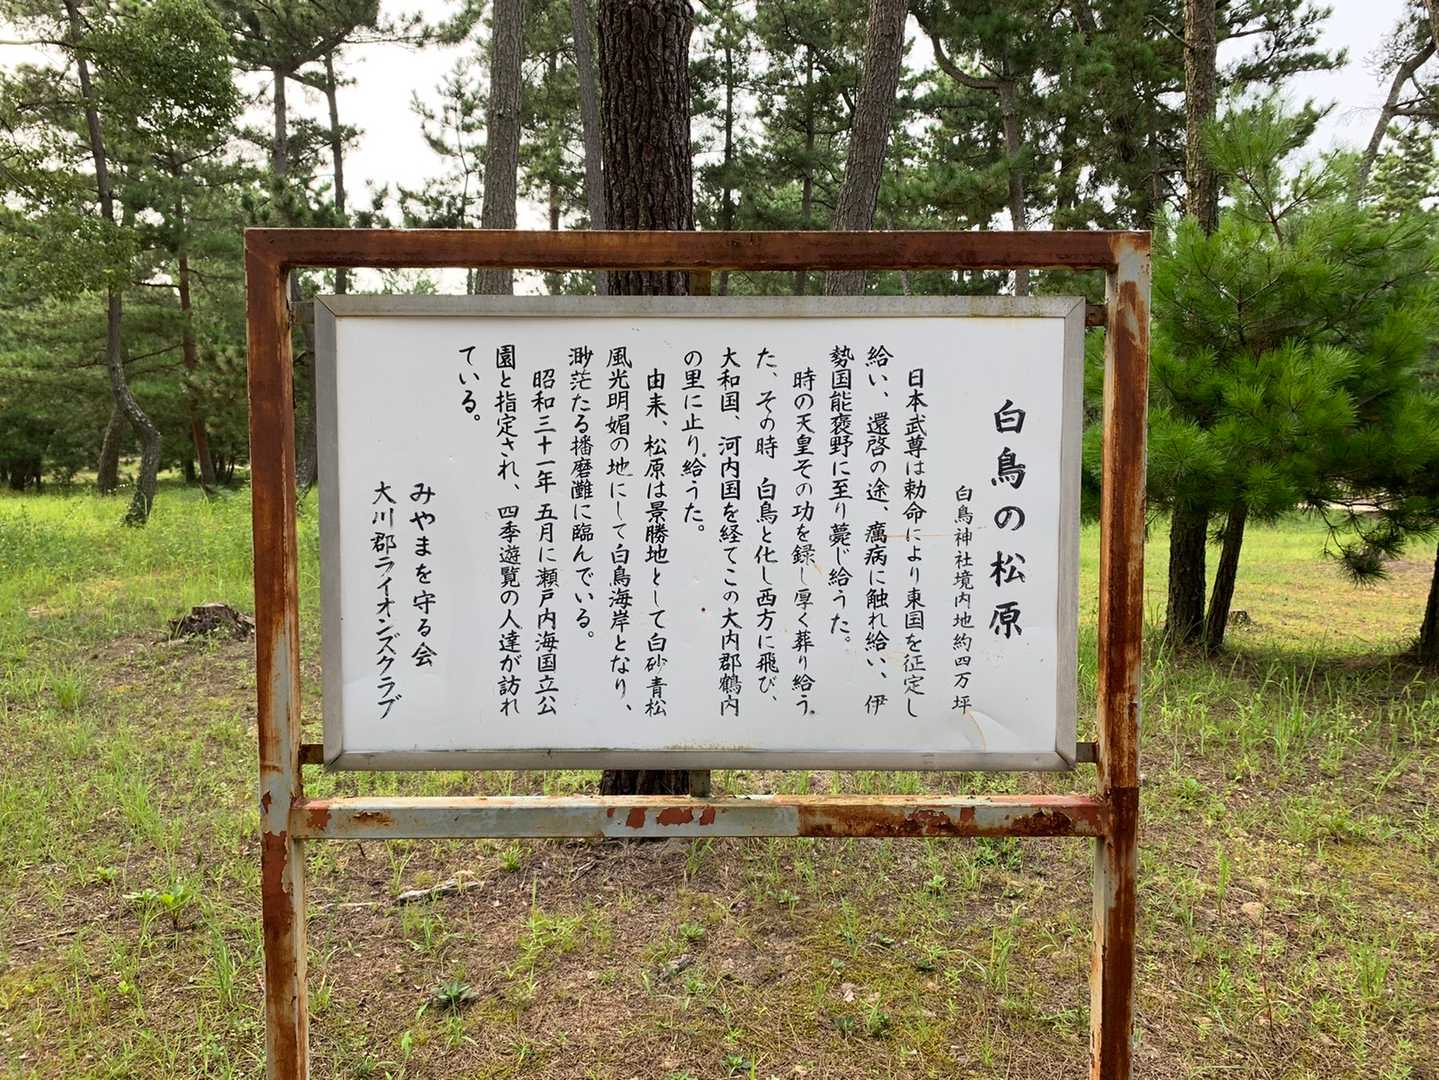 白鳥の松原
白鳥神社境内地約四万坪
日本武尊は勅命により東国を征定し
給い、還啓の途、癘病に触れ給い、伊
勢国能褒野に至り薨じ給うた。
時の天皇その功を録し厚く葬り給う
た、その時 白鳥と化し西方に飛び、
大和国、河内国を経てこの大内郡鶴内
の里に止り給うた。
由来、松原は景勝地として白砂青松
風光明媚の地にして白鳥海岸となり、
渺茫たる播磨灘に臨んでいる。
昭和三十一年五月に瀬戸内海国立公
園と指定され、四季遊覧の人達が訪れ
ている。
みやまを守る会
大川郡ライオンズクラブ